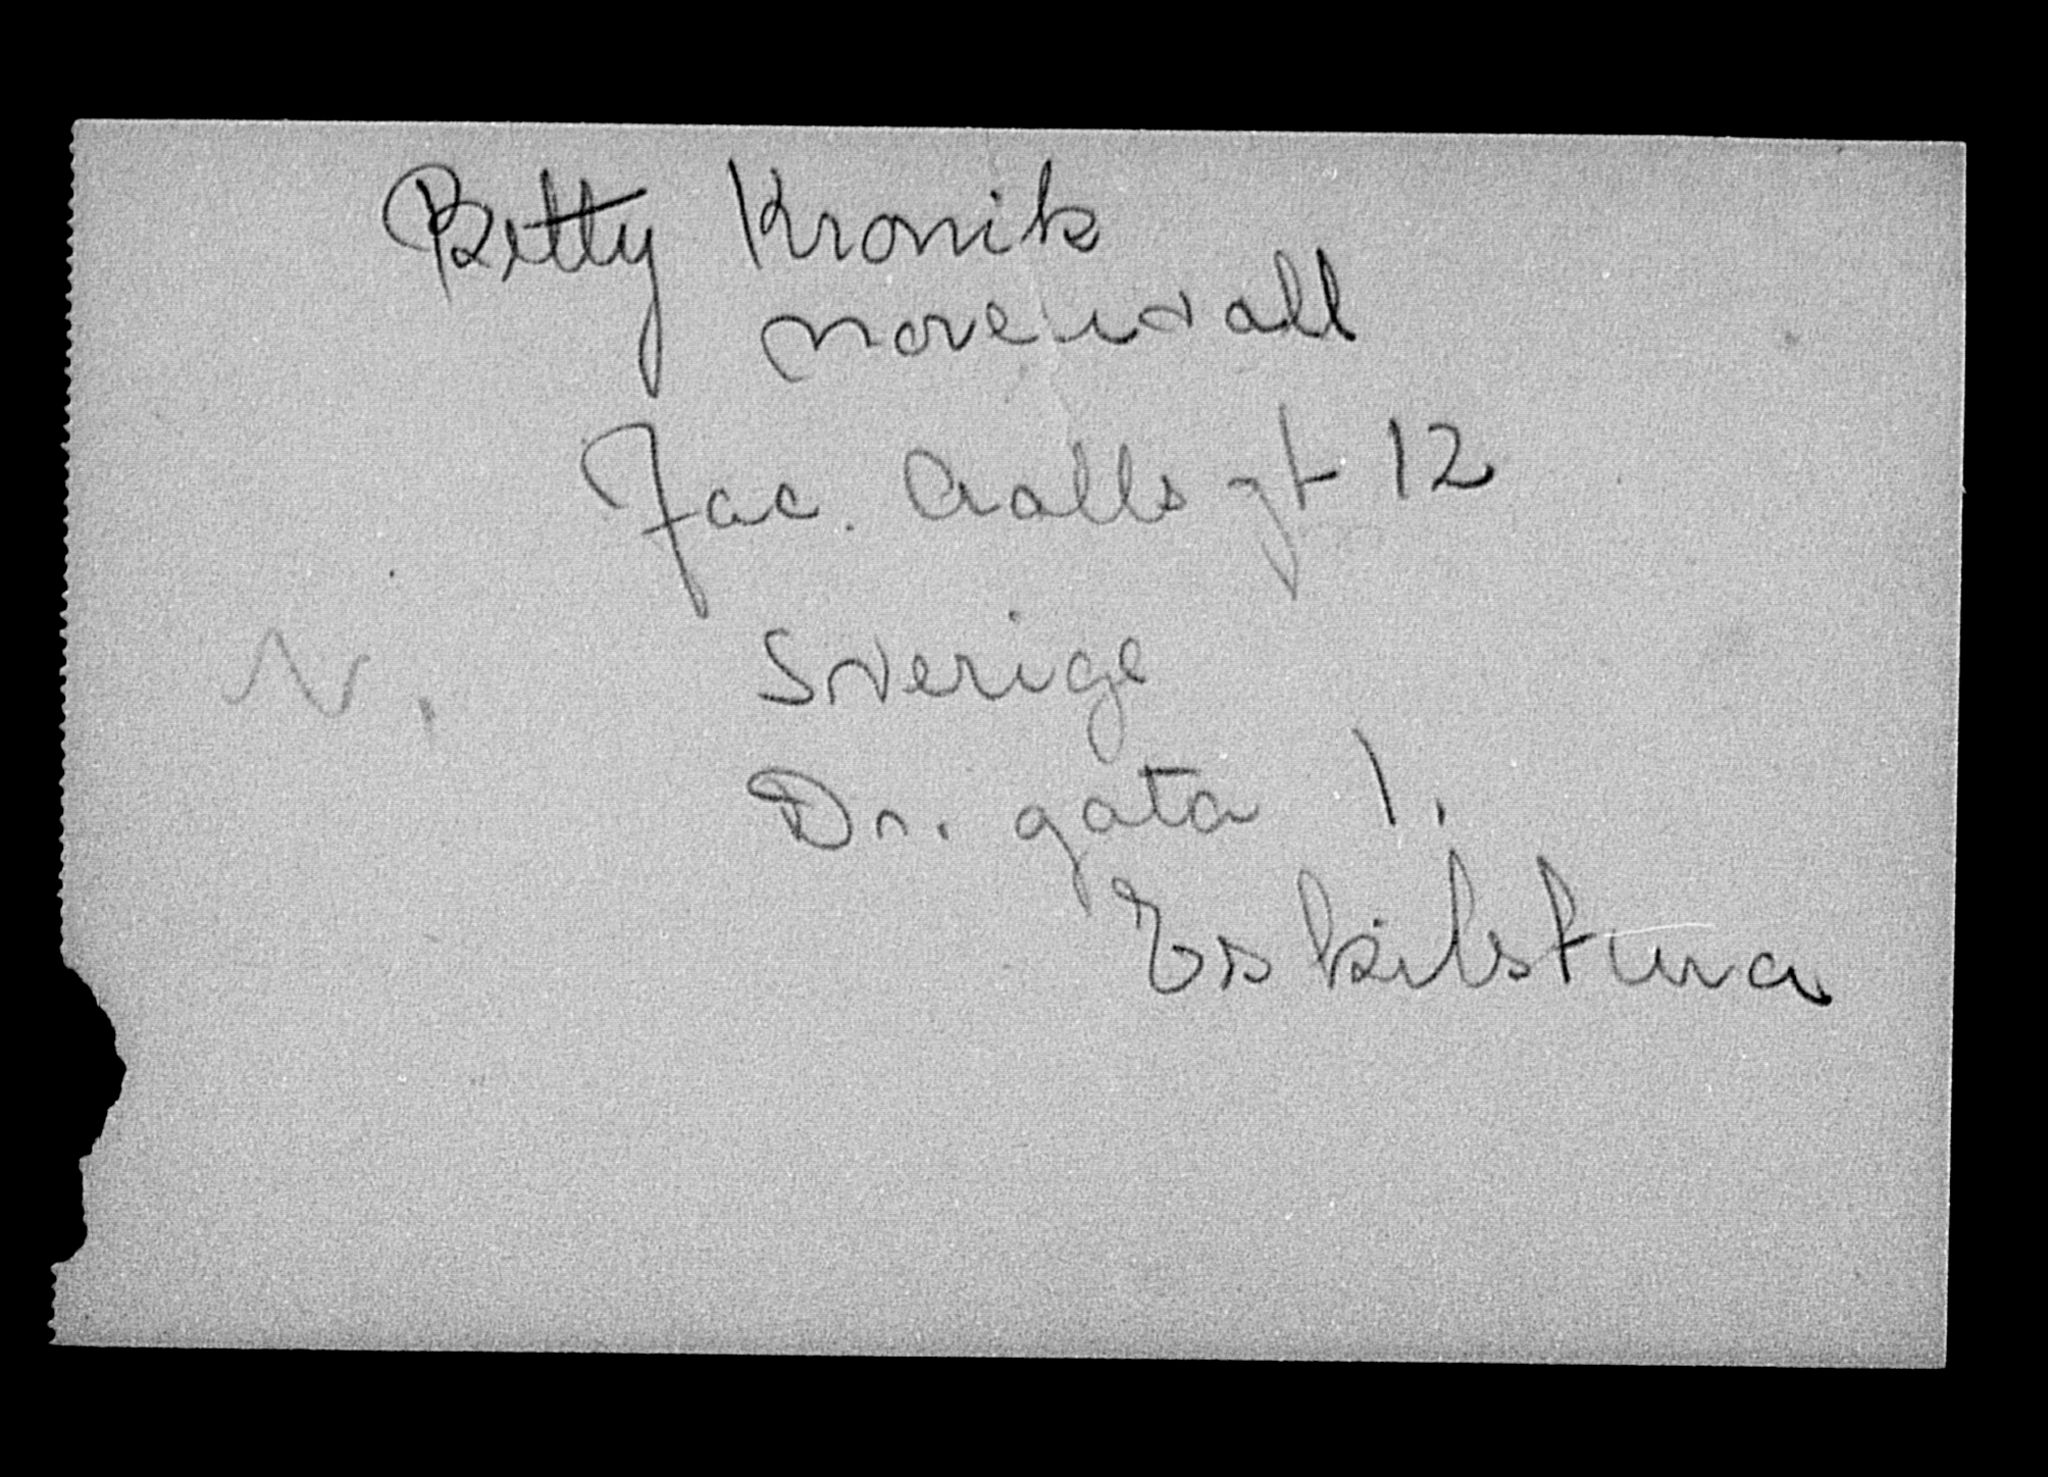 Betty Kronik
Jac. Aalls gt 12
N. Sverige
Dr. gata 1.
Eskilstuna